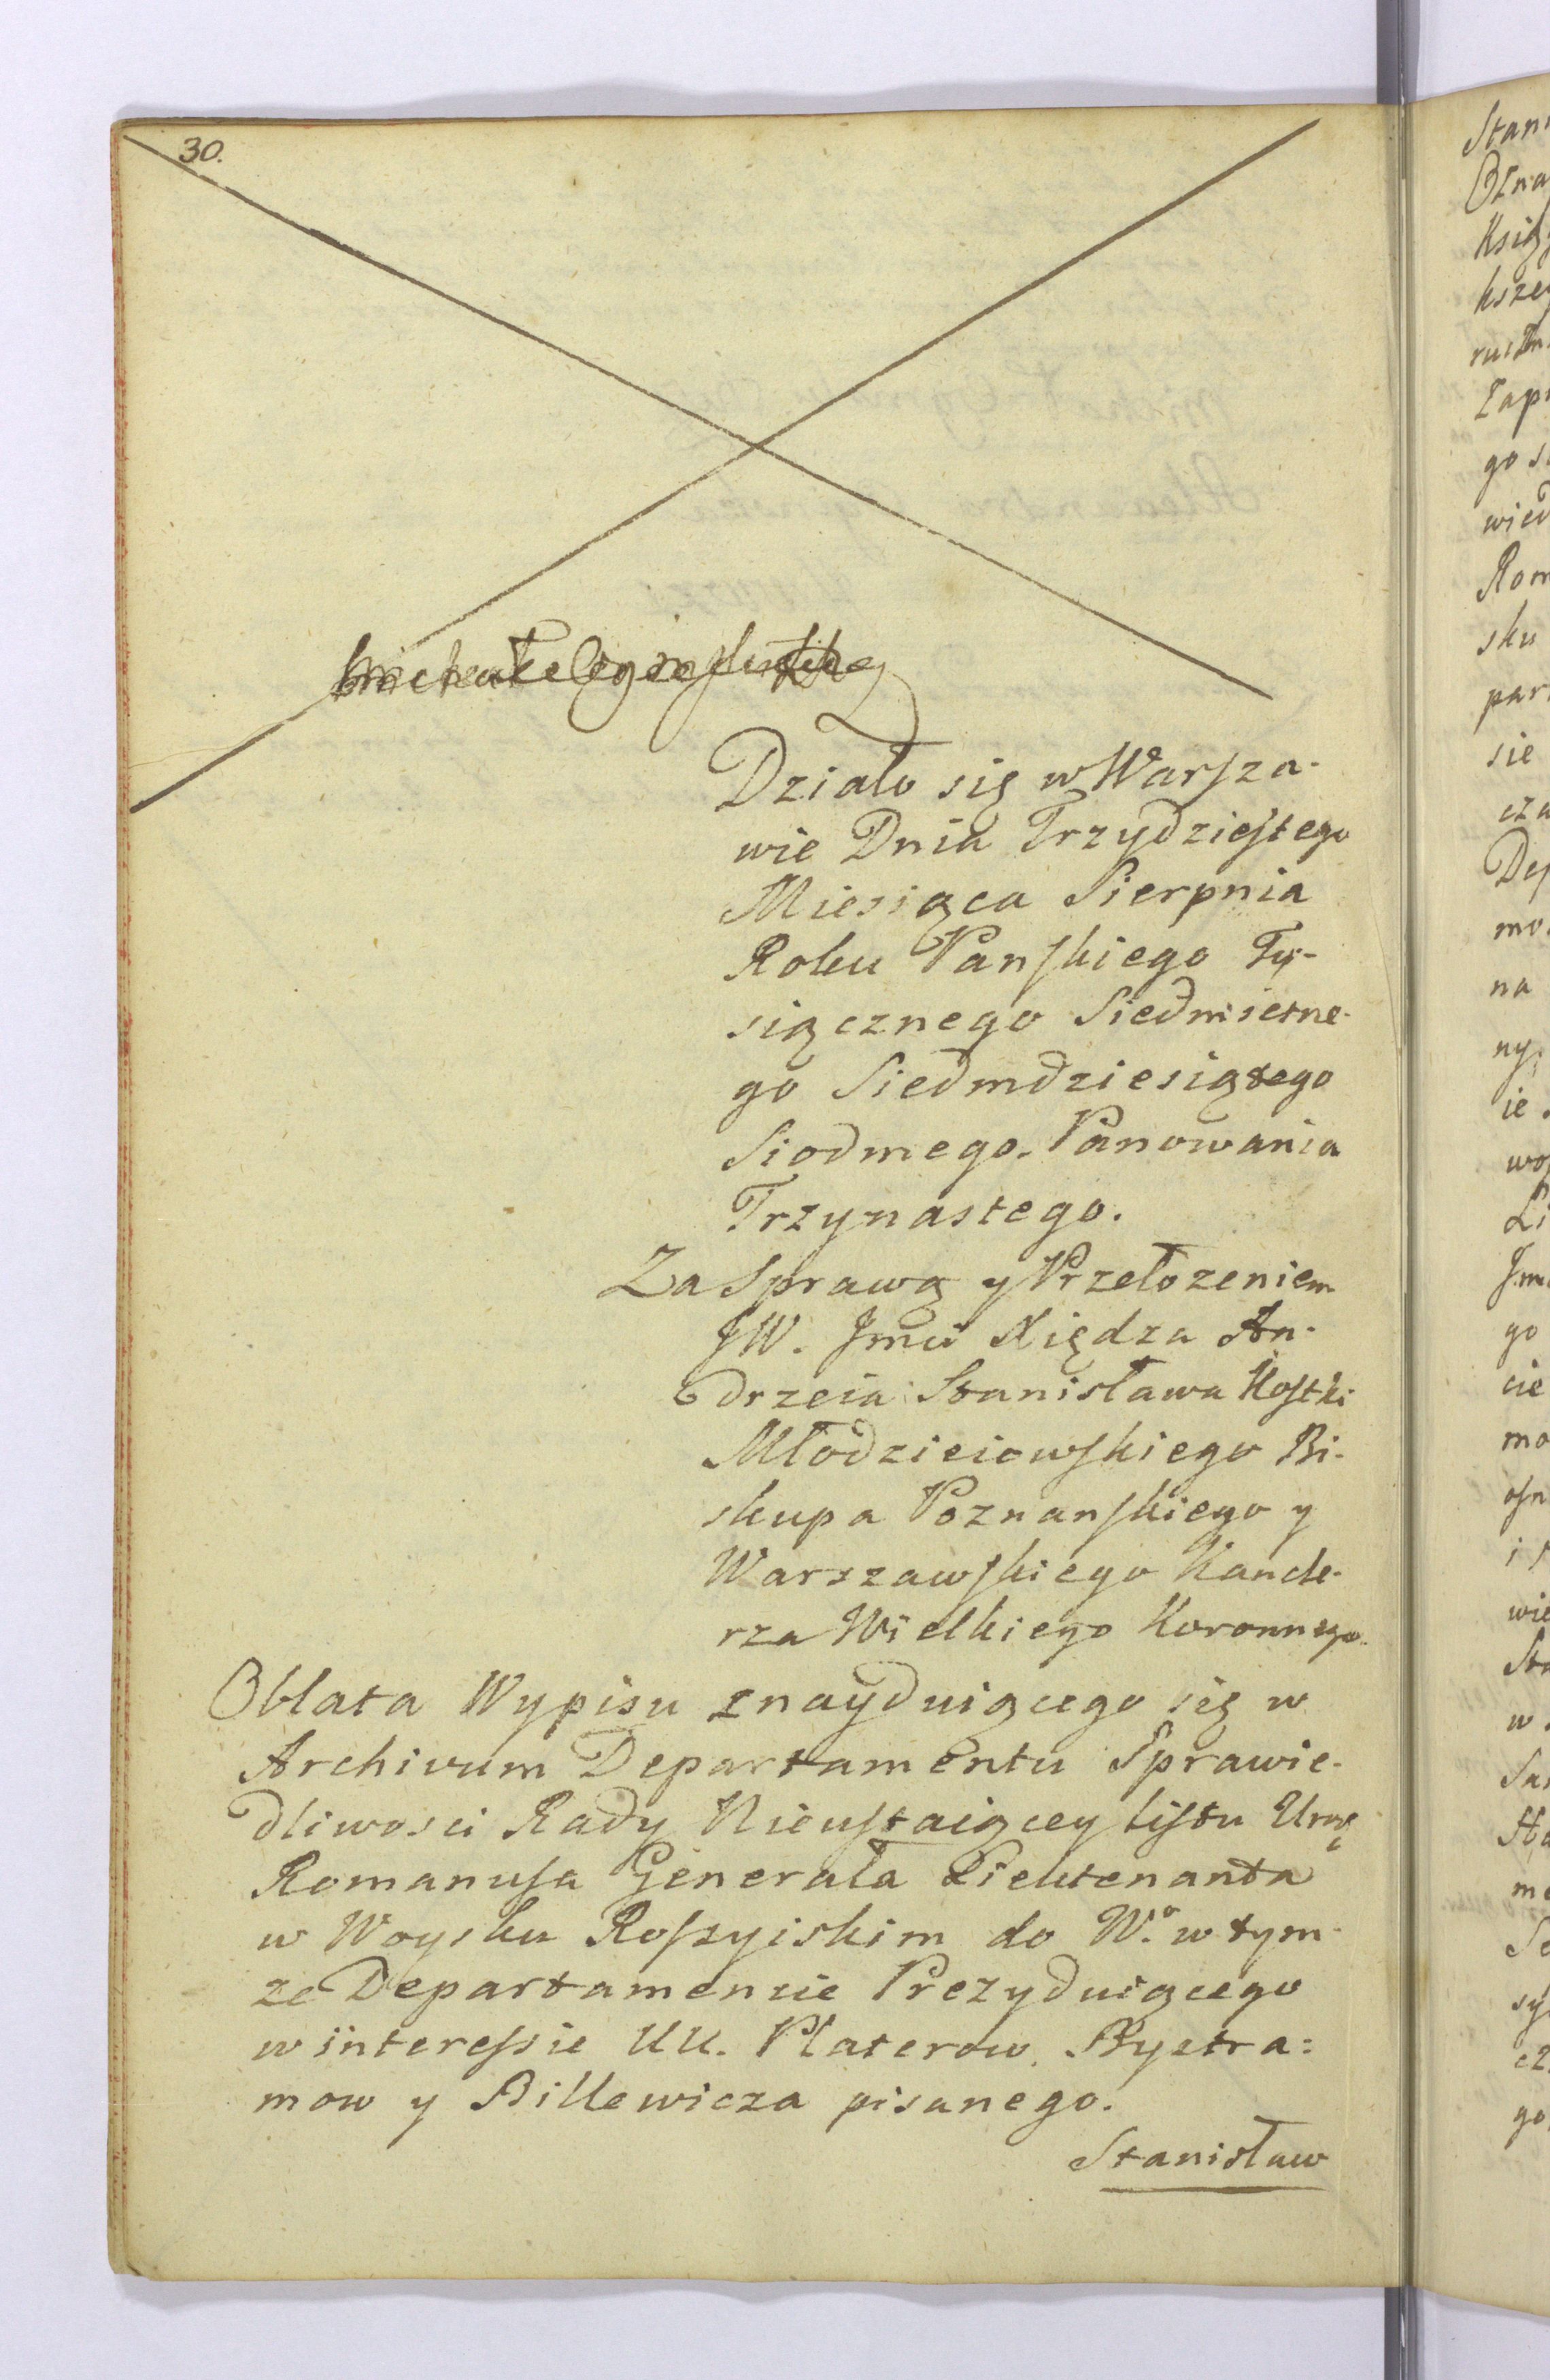 30.
Działo się w Warsza-
wie Dnia Trzydziestego
Miesiąca Sierpnia
Roku Panskiego Ty-
siącznego Siedmsetne-
go Siedmdziesiątego
Siodmego. Panowania
Trzynastego.
Za Sprawą y Przełozeniem
JW. Jmci Xiędza An-
drzeia Stanisława Kostki
Młodzieiowskiego Bi-
skupa Poznanskiego y
Warszawskiego Kancle-
rza Wielkiego Koronnego.
Oblata Wypisu znayduiącego się w
Archivum Departamentu Sprawie-
dliwosci Rady Nieustaiącey listu Urog
Romanusa Generała Liehtenanta
w Woysku Rossyiskim do W.o w tym-
ze Departamencie Prezyduiącego
w interessie UU. Platerow, Bystra=
mow y Billewicza pisanego.
Stanisław
Stan
Ozna
Ksią
kszey
Zap
go
wied
Rom
sku
par
sie
cza
Dep
mo
na
ny
ie
wo
Li
Jm
go
cie
mo
wie
w
me
go